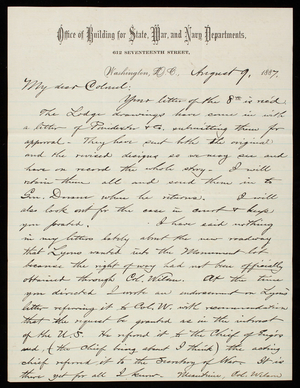 Office of Building for State, War, and Navy Departments,
612 SEVENTEENTH STREET,
Washington, D.C. August 9, 1887.
My dear Colonel:
Your letter of the 8th is rec'd.
The Lodge drawings have come in with
a letter of & Co. submitting them for
approval. They have sent both the original
and the revised designs so we may see and
have on record the whole story. I will
retain them all and send them in to
Gen. when he returns. I will
also look out for the case in court & keep
you posted. I have said nothing
in my letters lately about the new roadway
that Lyons wanted into the Monument lot
because the right of way had not been officially
obtained through Col. Wilson. At the time
you directed I made an indorsement on Lyons'
letter referring it to Col. W. with recommendation
that the request be granted as in the interest
of the U.S. He referred it to the Chief of Engrs
and, (the Chief being absent I think) the acting
chief referred it to the Secretary of War. It is
there yet for all I know. Meantime, Col. Wilson